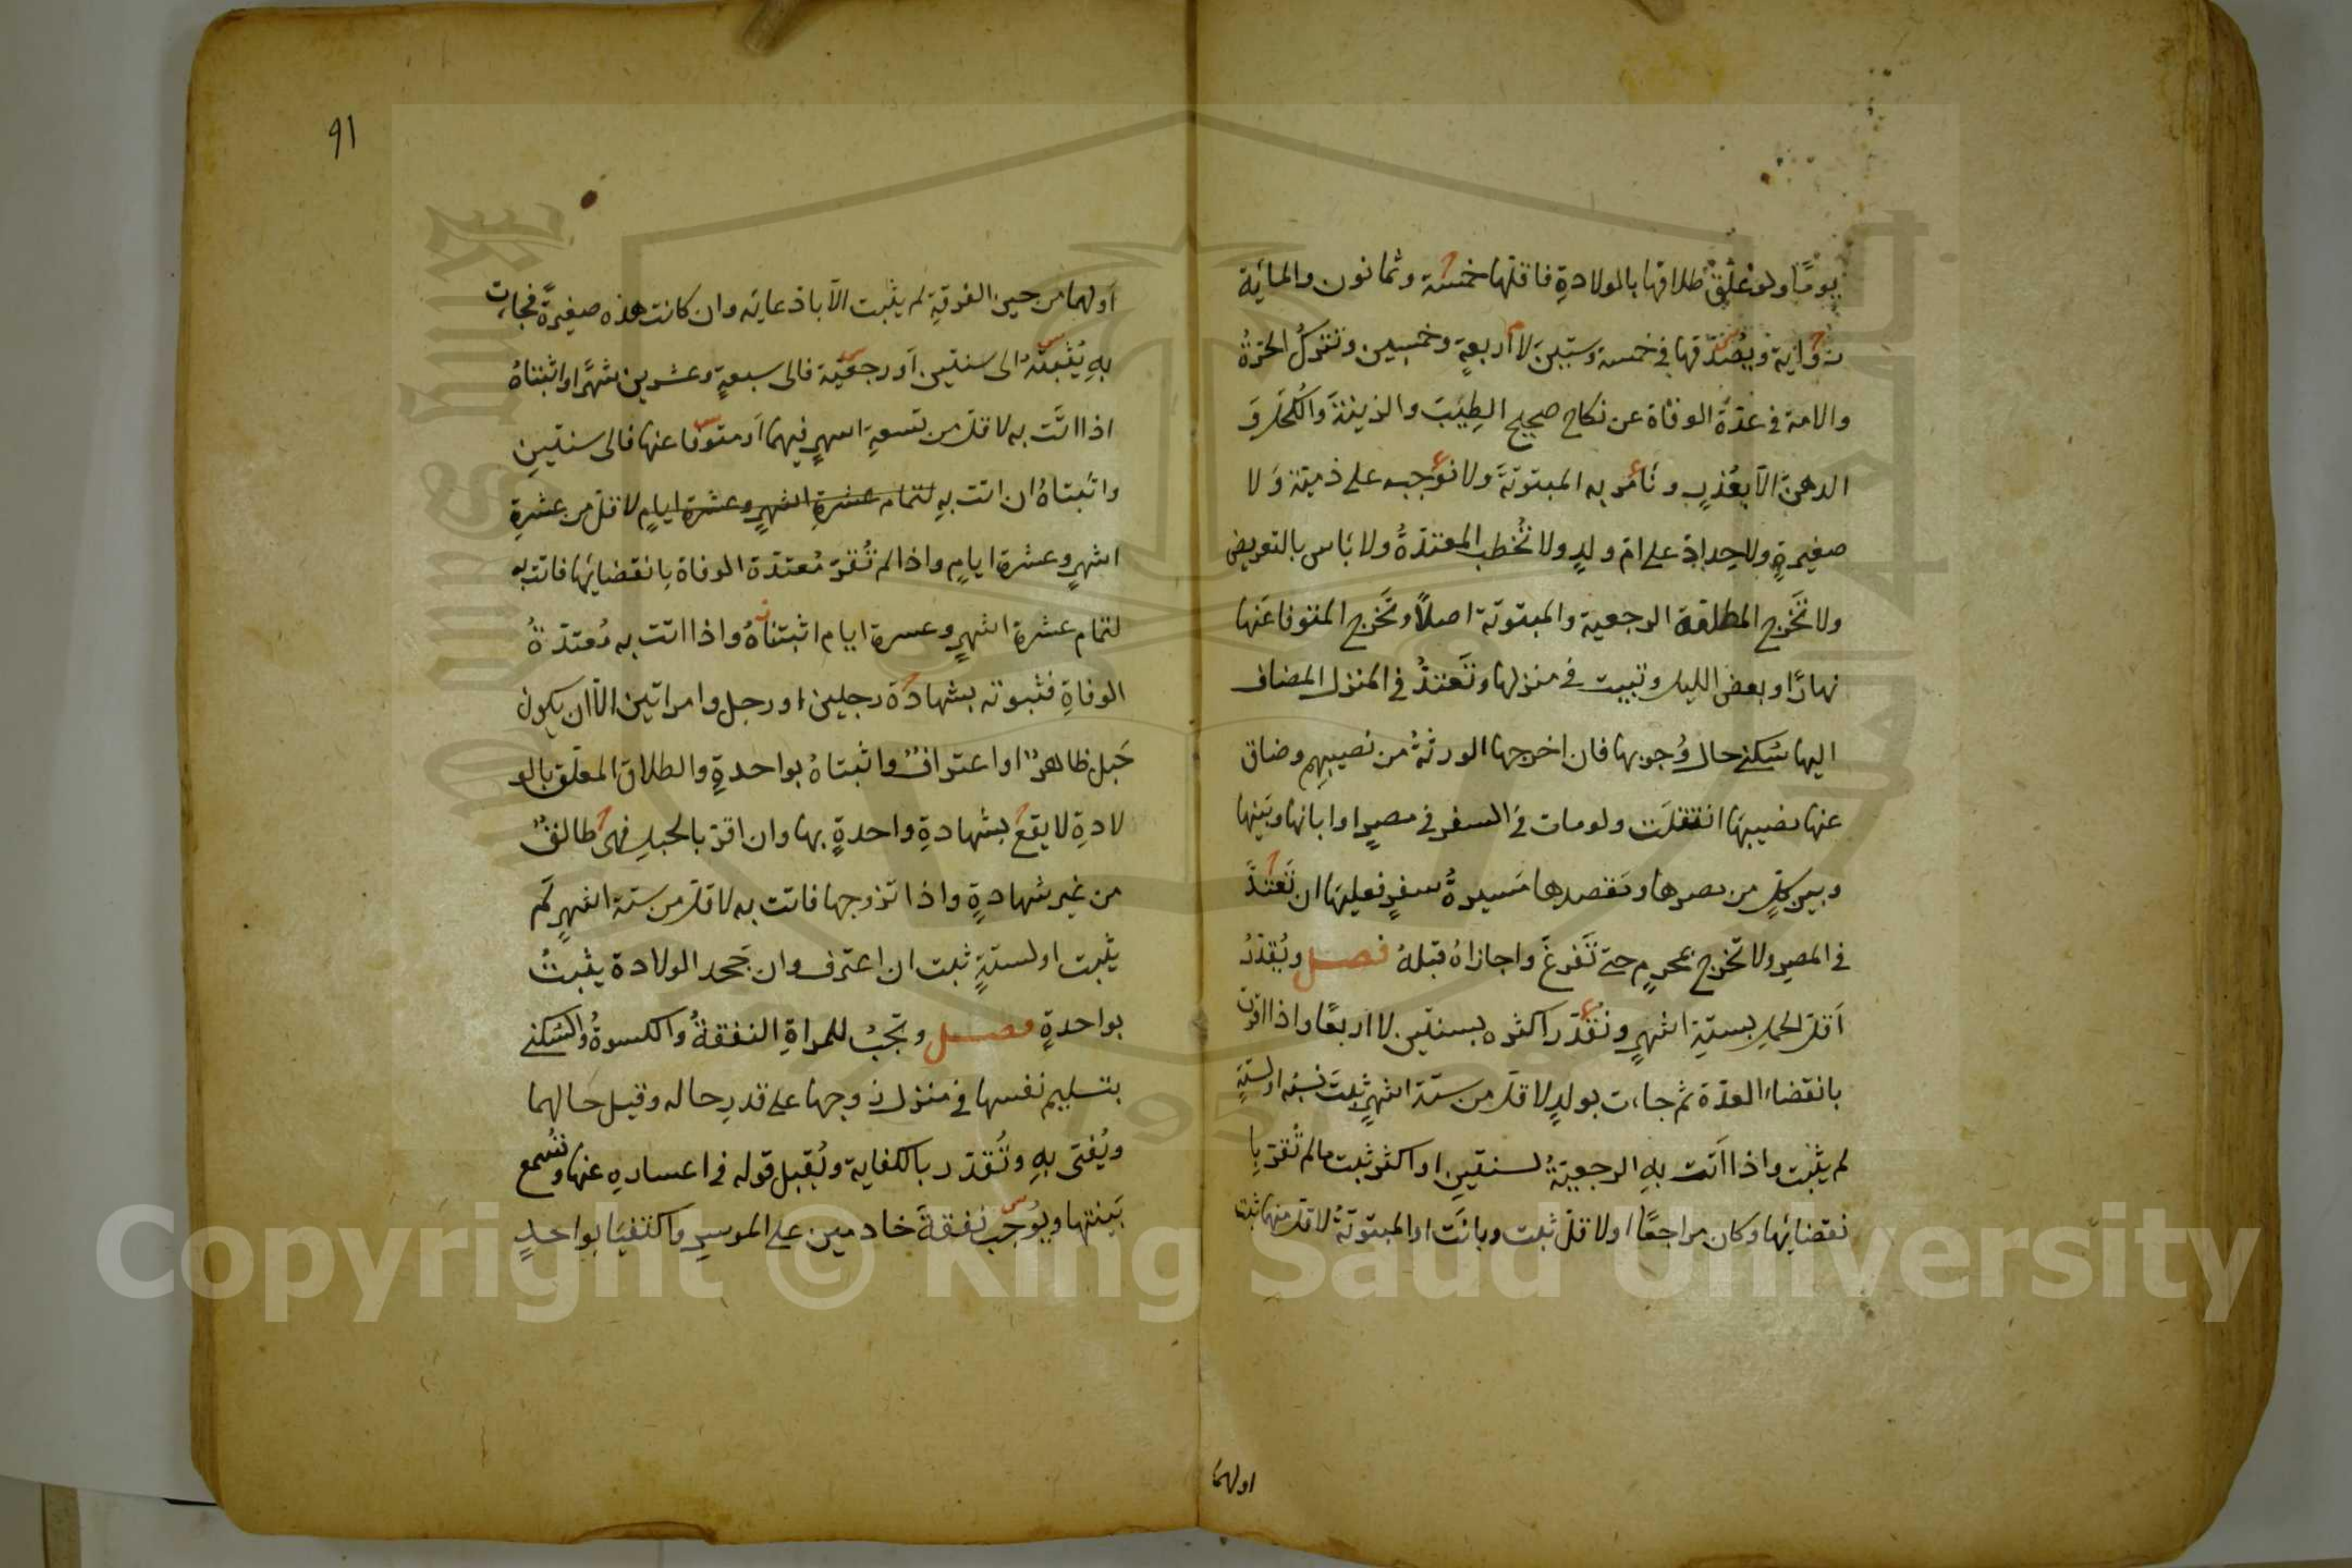 يومًا ولو علق طلاقها بالولادةِ فاقلها خمسة وثمانون والمائة
رواية ويصدقها في خمسة وستين لا أربعةٍ وخمسين وتترك الحرةُ
والامة في عدّة الوفاة عن نكاح صحيح الطيب والزينة والكحل و
الدهن الا بعُذرٍ ونامر به المبتوتة ولا نوجبه على ذميّة ولا
صغيرةٍ ولا حداد على ام ولدٍ ولا تُخطب المعتدةُ ولا باس بالتعريض
ولا تخرج المطلقة الرجعية والمبتوتة اصلاً وتخرج المتوفا عنها
نهارًا وبعض الليل وتبيت في منزلها وتَعتدُّ في المنزل المضاف
اليها سكنى حال وُجوبها فان اخرجها الورثةُ من نصيبهم وضاق
عنها نصيبها انتقلت ولو مات في السفر في مصرٍ او ابانها وبينها
وبين كلٍ من مصرها ومقصدها مسيرةُ سفرٍ فعليها ان تعتدَّ
في المصر ولا تخرج بمحرمٍ حتى تفرغ واجازاه قبله فصل ويُقدّرُ
اقل الحمل بستةِ اشهرٍ ونُقدّر اكثره بسنتين لا اربعًا واذا اقرت
بانقضاء العدّة ثم جاءت بولدٍ لاقل من ستة اشهرٍ ثبت نسبه او لستةٍ
لم يثبت واذا اتت بهِ الرجعيةُ لسنتين او اكثر ثبت مالم تُقر با
نقضائها وكان مراجعًا او لاقل ثبت وبانت او المبتوتةُ لاقل منهما ثبت
اولهما
٩١
اولهما من حين الفرقة لم يثبت الاّ باذعائه وان كانت هذه صغيرةً فجاءت
بهِ يُثبته الى سنتين او رجعية فالى سبعةٍ وعشرين شهرًا واثبتاهُ
اذا اتت به لاقل من تسعةِ اشهرٍ فيهما او متوفا عنها فالى سنتين
واثبتاهُ ان اتت بهِ لتمام عشرةِ اشهرٍ وعشرة ايامٍ لاقل من عشرةِ
اشهرٍ وعشرة ايامٍ واذا لم تُقرّ مُعتدّة الوفاة بانقضائها فاتت به
لتمام عشرة اشهرٍ وعشرة ايام اثبتناهُ واذا اتت به مُعتدّةُ
الوفاةِ فثبوته بشهادة رجلين او رجل وامراتين الاّ ان يكون
حَبل ظاهرٌ او اعترافٌ واثبتاهُ بواحدةٍ والطلاق المعلّق بالو
لادةِ لا يقع بشهادةِ واحدةٍ بها وان اقرّ بالحبل فهى طالقٌ
من غير شهادةٍ واذا تزوجها فاتت به لاقل من ستة اشهرٍ لم
يثبت او لستةٍ ثبت ان اعترف وان جَحد الولادة يثبتُ
بواحدةٍ فصل وتجبُ للمراةِ النفقةُ والكسوةُ والسُكنى
بتسليم نفسها في منزل زوجها على قدر حاله وقيل حالهما
ويُفتى بهِ وتُقدّر بالكفاية ويُقبل قوله في اعسارهِ عنها وتُسمع
بَينتها ويُوجب نفقةَ خادمين على الموسرِ واكتفيَا بواحدٍ
Copyright © King Saud University